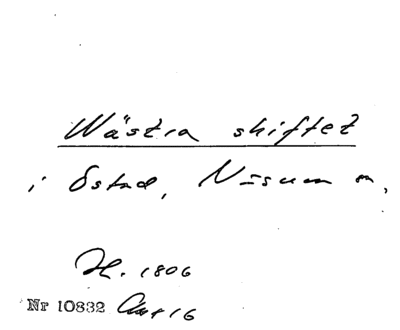 Wästra skiftet
i Östad, N=sum m,
H. 1806
Nr 10832 16